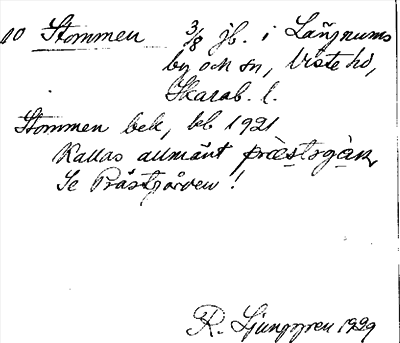 10 Stommen 3/8 jb. i Långnums
by och sn, Viste hd,
Skarab. l.
Stommen bek, kb 1921
Kallas allmänt præstsgàrn,
Se Prästgården!
R. Ljunggren 1929